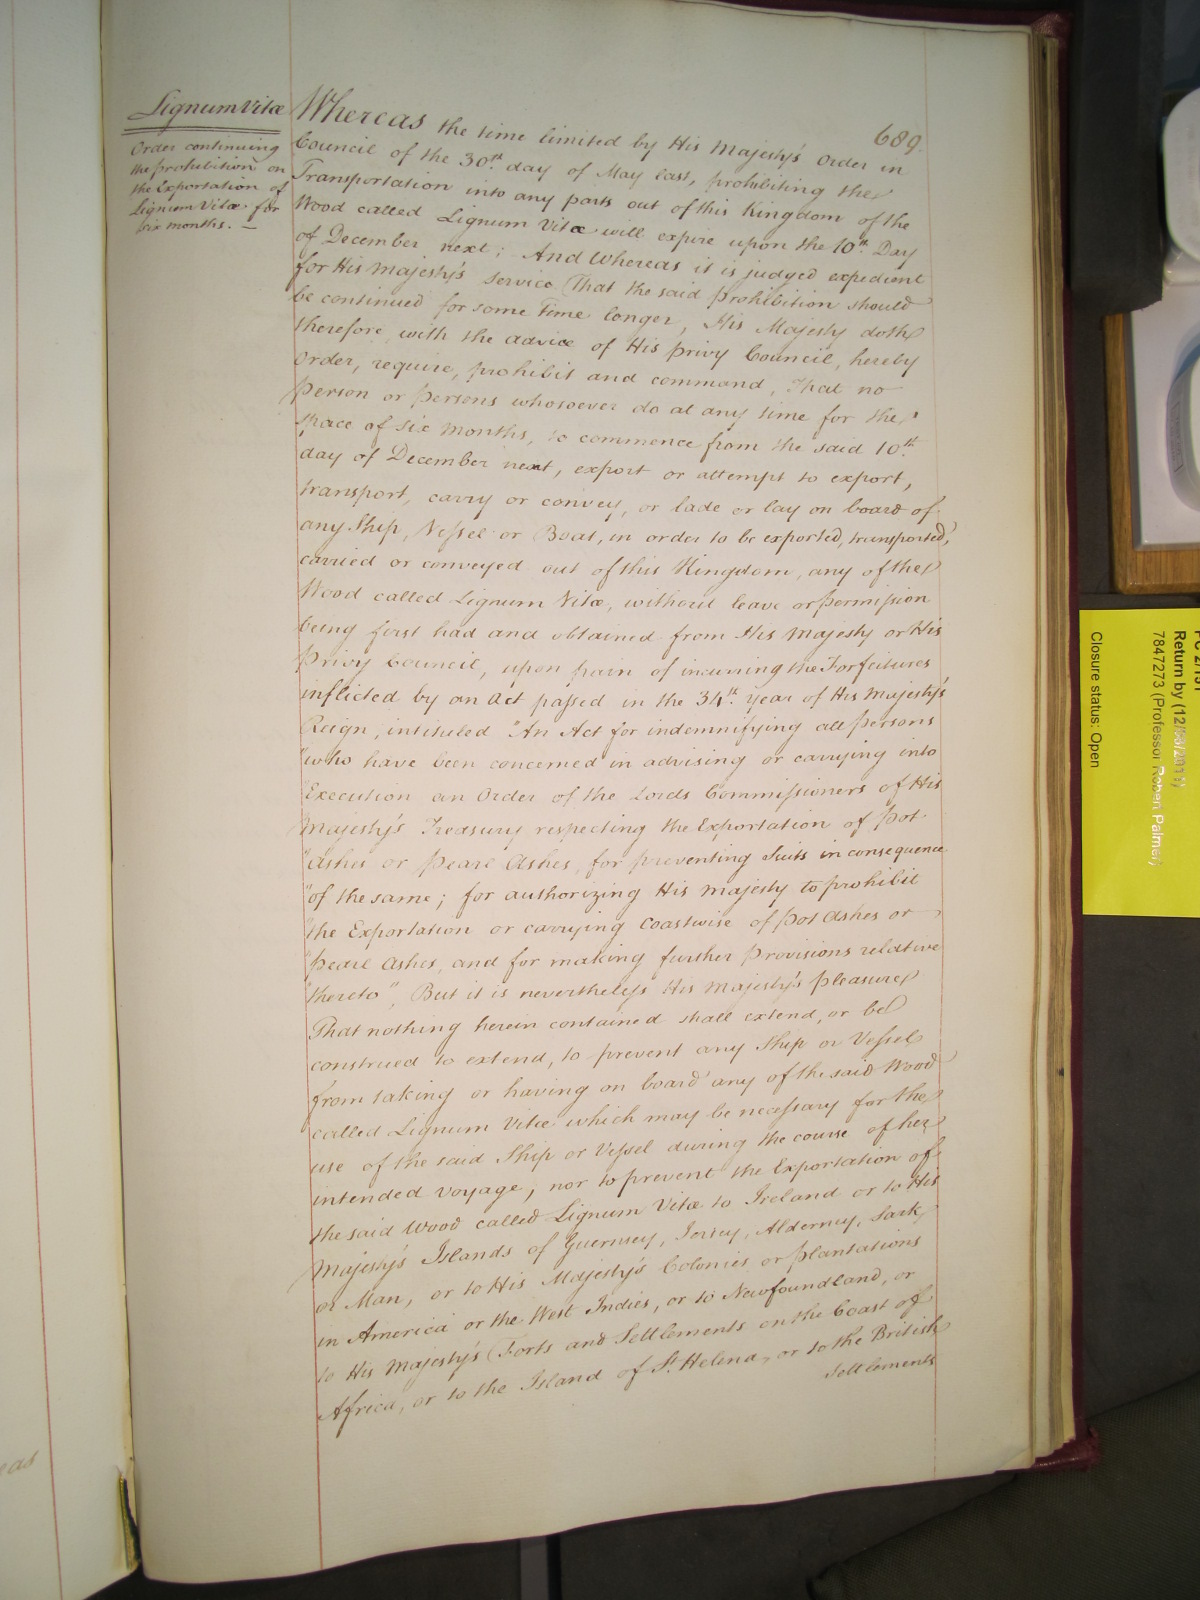 689.
Lignum Vitæ
Order continuing
the prohibition on
the Exportation of
Lignum Vitæ for
six months. —
Whereas the time limited by His Majesty's Order in
Council of the 30th day of May last, prohibiting the
Transportation into any parts out of this Kingdom of the
Wood called Lignum Vitæ will expire upon the 10th Day
of December next; And Whereas it is judged expedient
for His Majesty's Service That the said prohibition should
be continued for some time longer, His Majesty doth
therefore, with the advice of His Privy Council, hereby
Order, require, prohibit and command, That no
Person or Persons whosoever do at any time for the
space of six Months, to commence from the said 10th
day of December next, export or attempt to export,
transport, carry or convey, or lade or lay on board of
any Ship, Vessel or Boat, in order to be exported, transported,
carried or conveyed out of this Kingdom, any of the
Wood called Lignum Vitæ, without leave or permission
being first had and obtained from His Majesty or His
Privy Council, upon pain of incurring the Forfeitures
inflicted by an Act passed in the 34th Year of His Majesty's
Reign, intituled "An Act for indemnifying all Persons
"who have been concerned in advising or carrying into
"Execution an Order of the Lords Commissioners of His
Majesty's Treasury respecting the Exportation of Pot
"Ashes or Pearl Ashes, for preventing Suits in consequence
"of the same; for authorizing His Majesty to prohibit
"the Exportation or carrying Coastwise of Pot Ashes or
"Pearl Ashes, and for making further Provisions relative
"thereto", But it is nevertheless His Majesty's pleasure
That nothing herein contained shall extend, or be
construed to extend, to prevent any Ship or Vessel
from taking or having on board any of the said Wood
called Lignum Vitæ which may be necessary for the
use of the said Ship or Vessel during the course of her
intended voyage, nor to prevent the Exportation of
the said Wood called Lignum Vitæ to Ireland or to His
Majesty's Islands of Guernsey, Jersey, Alderney, Sark,
or Man, or to His Majesty's Colonies or Plantations
in America or the West Indies, or to Newfoundland, or
to His Majesty's Forts and Settlements on the Coast of
Africa, or to the Island of St. Helena, or to the British
Settlements
Return by (12/08/2011)
7847273 (Professor Robert Palmer)
Closure status: Open